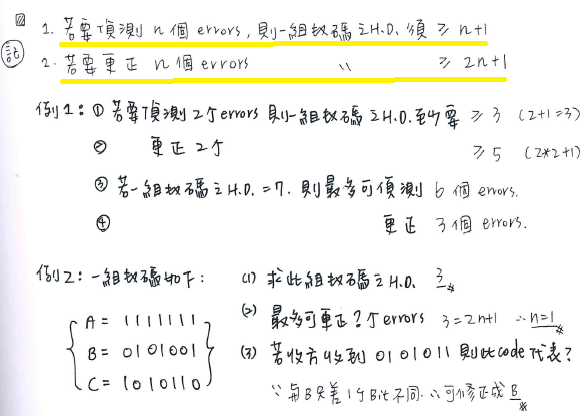 1. 若要偵測 n 個 errors, 則一組數碼之H.D. 須 ≥ n+1
記
2. 若要更正 n 個 errors 〃 ≥ 2n+1
例1: ① 若要偵測 2个 errors 則一組數碼之H.D.至少要 ≥ 3 (2+1=3)
② 更正 2个 ≥ 5 (2*2+1)
③ 若一組數碼之H.D. = 7. 則最多可偵測 6 個 errors.
④ 更正 3 個 errors.
例2: 一組數碼如下: (1) 求此組數碼之H.D. 3
A = 1111111
B = 0101001
C = 1010110
(2) 最多可更正?个 errors 3=2n+1 ∴ n=1
(3) 若收方收到 0101011 則此code代表?
∵ 與B只差1个Bit不同. ∴可修正成 B